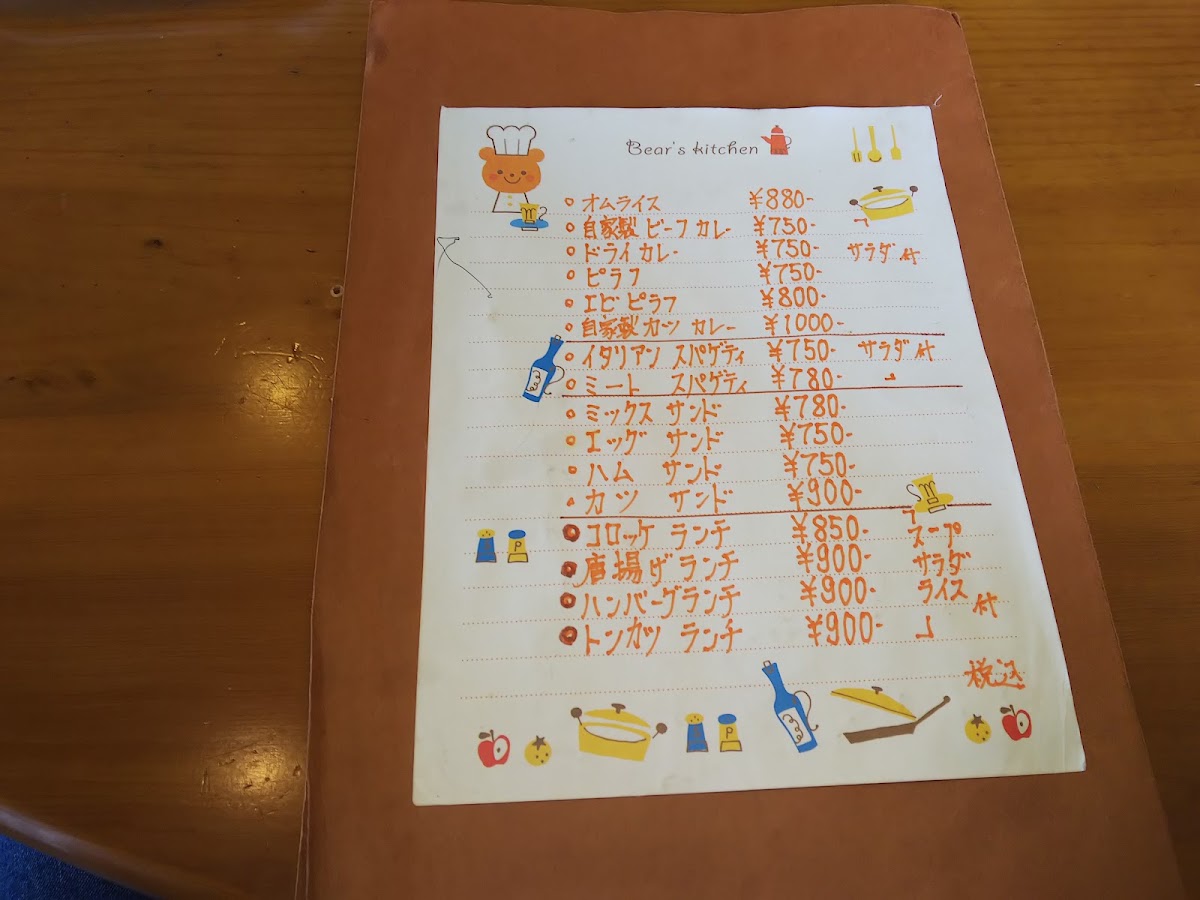 Bear's kitchen
オムライス ¥880-
自家製ビーフカレー ¥750- ㄱ
ドライカレー ¥750- サラダ付
ピラフ ¥750-
エビピラフ ¥800-
自家製カツカレー ¥1000-
イタリアン スパゲティ ¥750- サラダ付
ミート スパゲティ ¥780- 」
ミックス サンド ¥780-
エッグ サンド ¥750-
ハム サンド ¥750-
カツ サンド ¥900-
コロッケ ランチ ¥850- スープ
唐揚げランチ ¥900- サラダ
ハンバーグランチ ¥900- ライス付
トンカツ ランチ ¥900- 」
税込
P
P